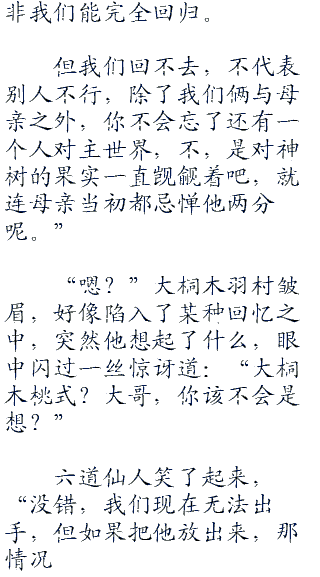 非我们能完全回归。
但我们回不去，不代表
别人不行，除了我们俩与母
亲之外，你不会忘了还有一
个人对主世界，不，是对神
树的果实一直觊觎着吧，就
连母亲当初都忌惮他两分
呢。”
“嗯？”大桐木羽村皱
眉，好像陷入了某种回忆之
中，突然他想起了什么，眼
中闪过一丝惊讶道：“大桐
木桃式？大哥，你该不会是
想？”
六道仙人笑了起来，
“没错，我们现在无法出
手，但如果把他放出来，那
情况